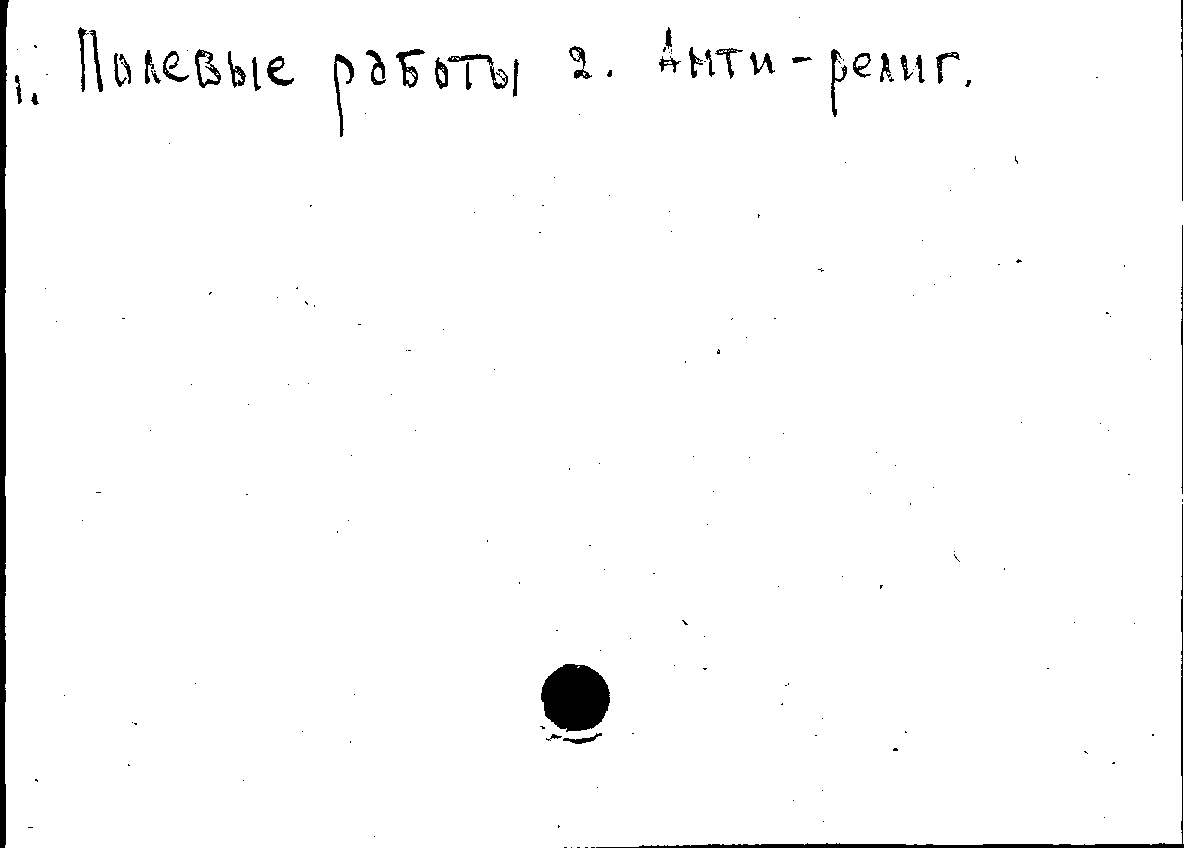 1. Полевые работы 2. Анти-религ.